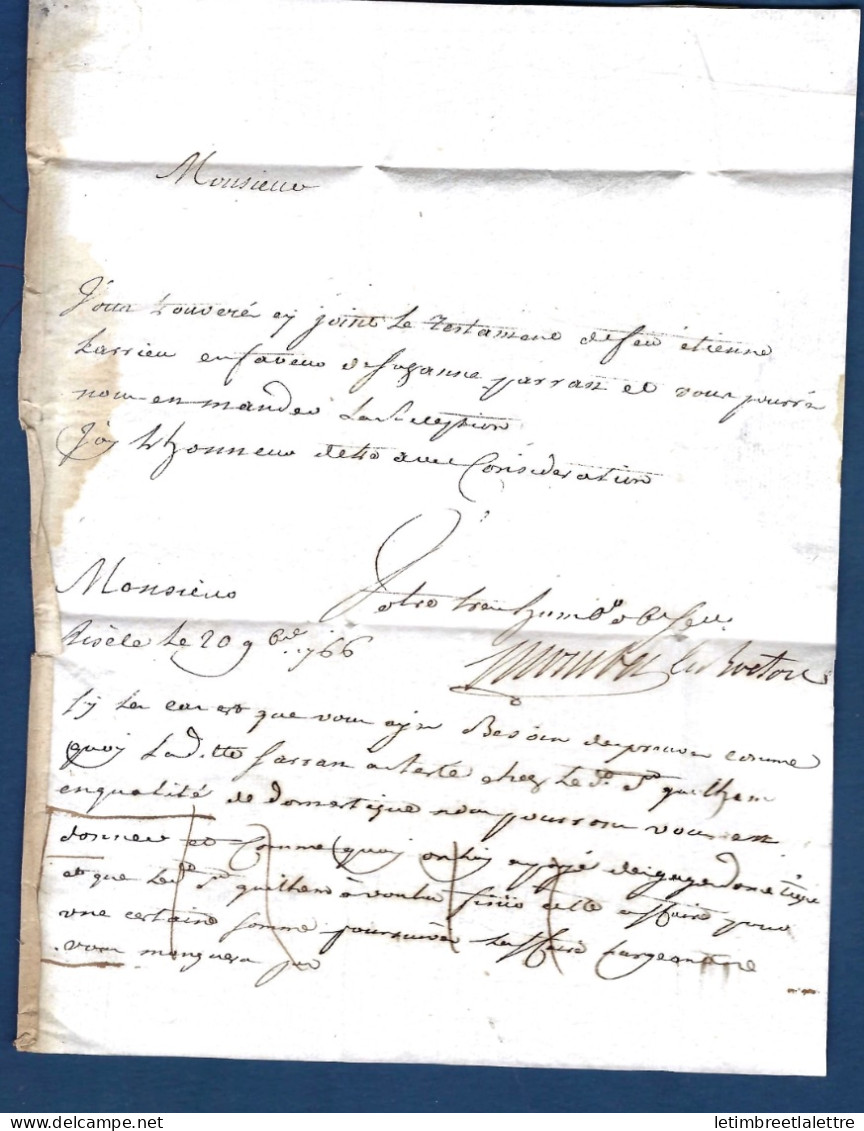 Monsieur
Vous trouveré cy joint le testament de feu étienne
Larrieu en faveur de Suzanne parran et vous pourré
nous en mander la Reception
J'ay Lhonneur detre avec Consideration
Monsieur
Votre tres humb obe ser
Riscle le 20 9bre 1766
Sy le cas est que vous ayés Besoin de preuve comme
quoy Laditte parran a resté chez le Sr. St guilhem
en qualité de domestique nous pourrons vous en
donner et Comme quoy on luy a payé des gages domestique
et que led. Sr guilhem a voulu finir cette affaire pour
une certaine somme poursuivés Laffaire Largeant ne
vous manquera pas
letimbreetlalettre